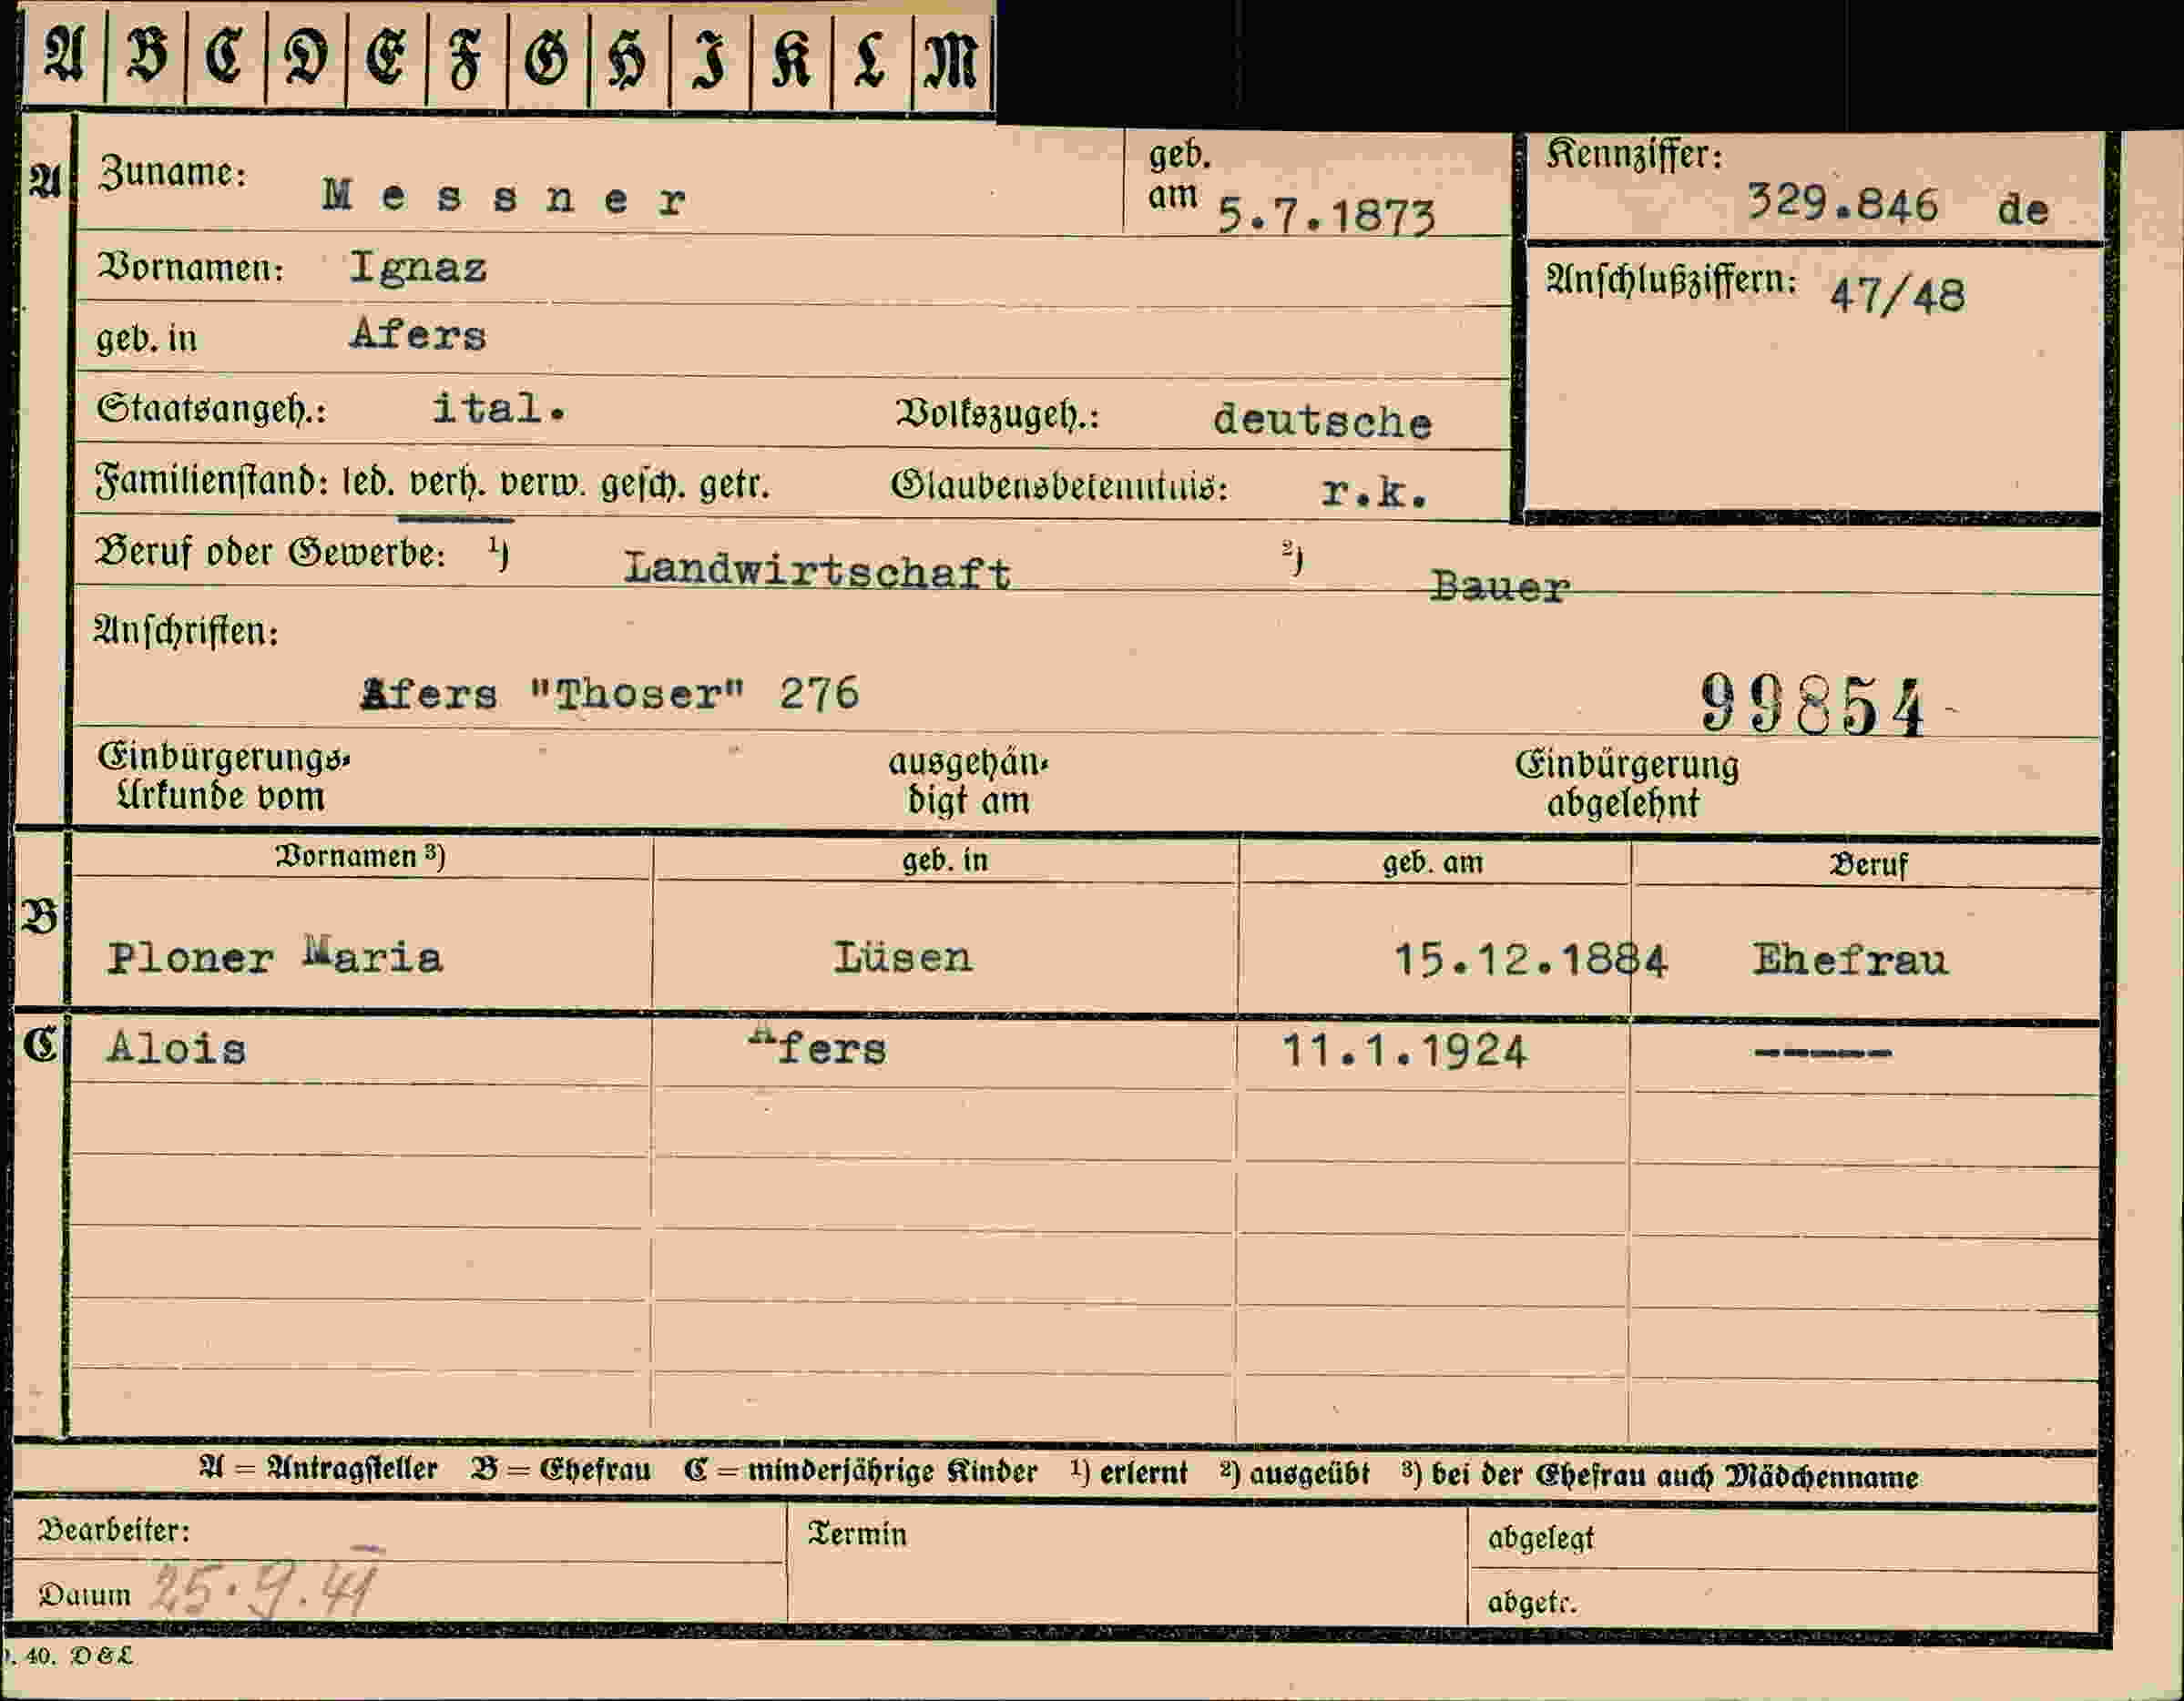 A B C D E F G H I K L M
A Zuname: Messner geb. am 5.7.1873 Kennziffer: 329.846 de
Vornamen: Ignaz Anschlußziffern: 47/48
geb. in Afers
Staatsangeh.: ital. Volkszugeh.: deutsche
Familienstand: led. verh. verw. gesch. getr. Glaubensbekenntnis: r.k.
Beruf oder Gewerbe: ¹) Landwirtschaft ²) Bauer
Anschriften:
Afers "Thoser" 276 99854
Einbürgerungs- ausgehän- Einbürgerung
Urkunde vom digt am abgelehnt
Vornamen ³) geb. in geb. am Beruf
B
Ploner Maria Lüsen 15.12.1884 Ehefrau
C Alois Afers 11.1.1924 -----
A = Antragsteller B = Ehefrau C = minderjährige Kinder ¹) erlernt ²) ausgeübt ³) bei der Ehefrau auch Mädchenname
Bearbeiter: Termin abgelegt
Datum 25.9.41 abgetr.
40. D & L